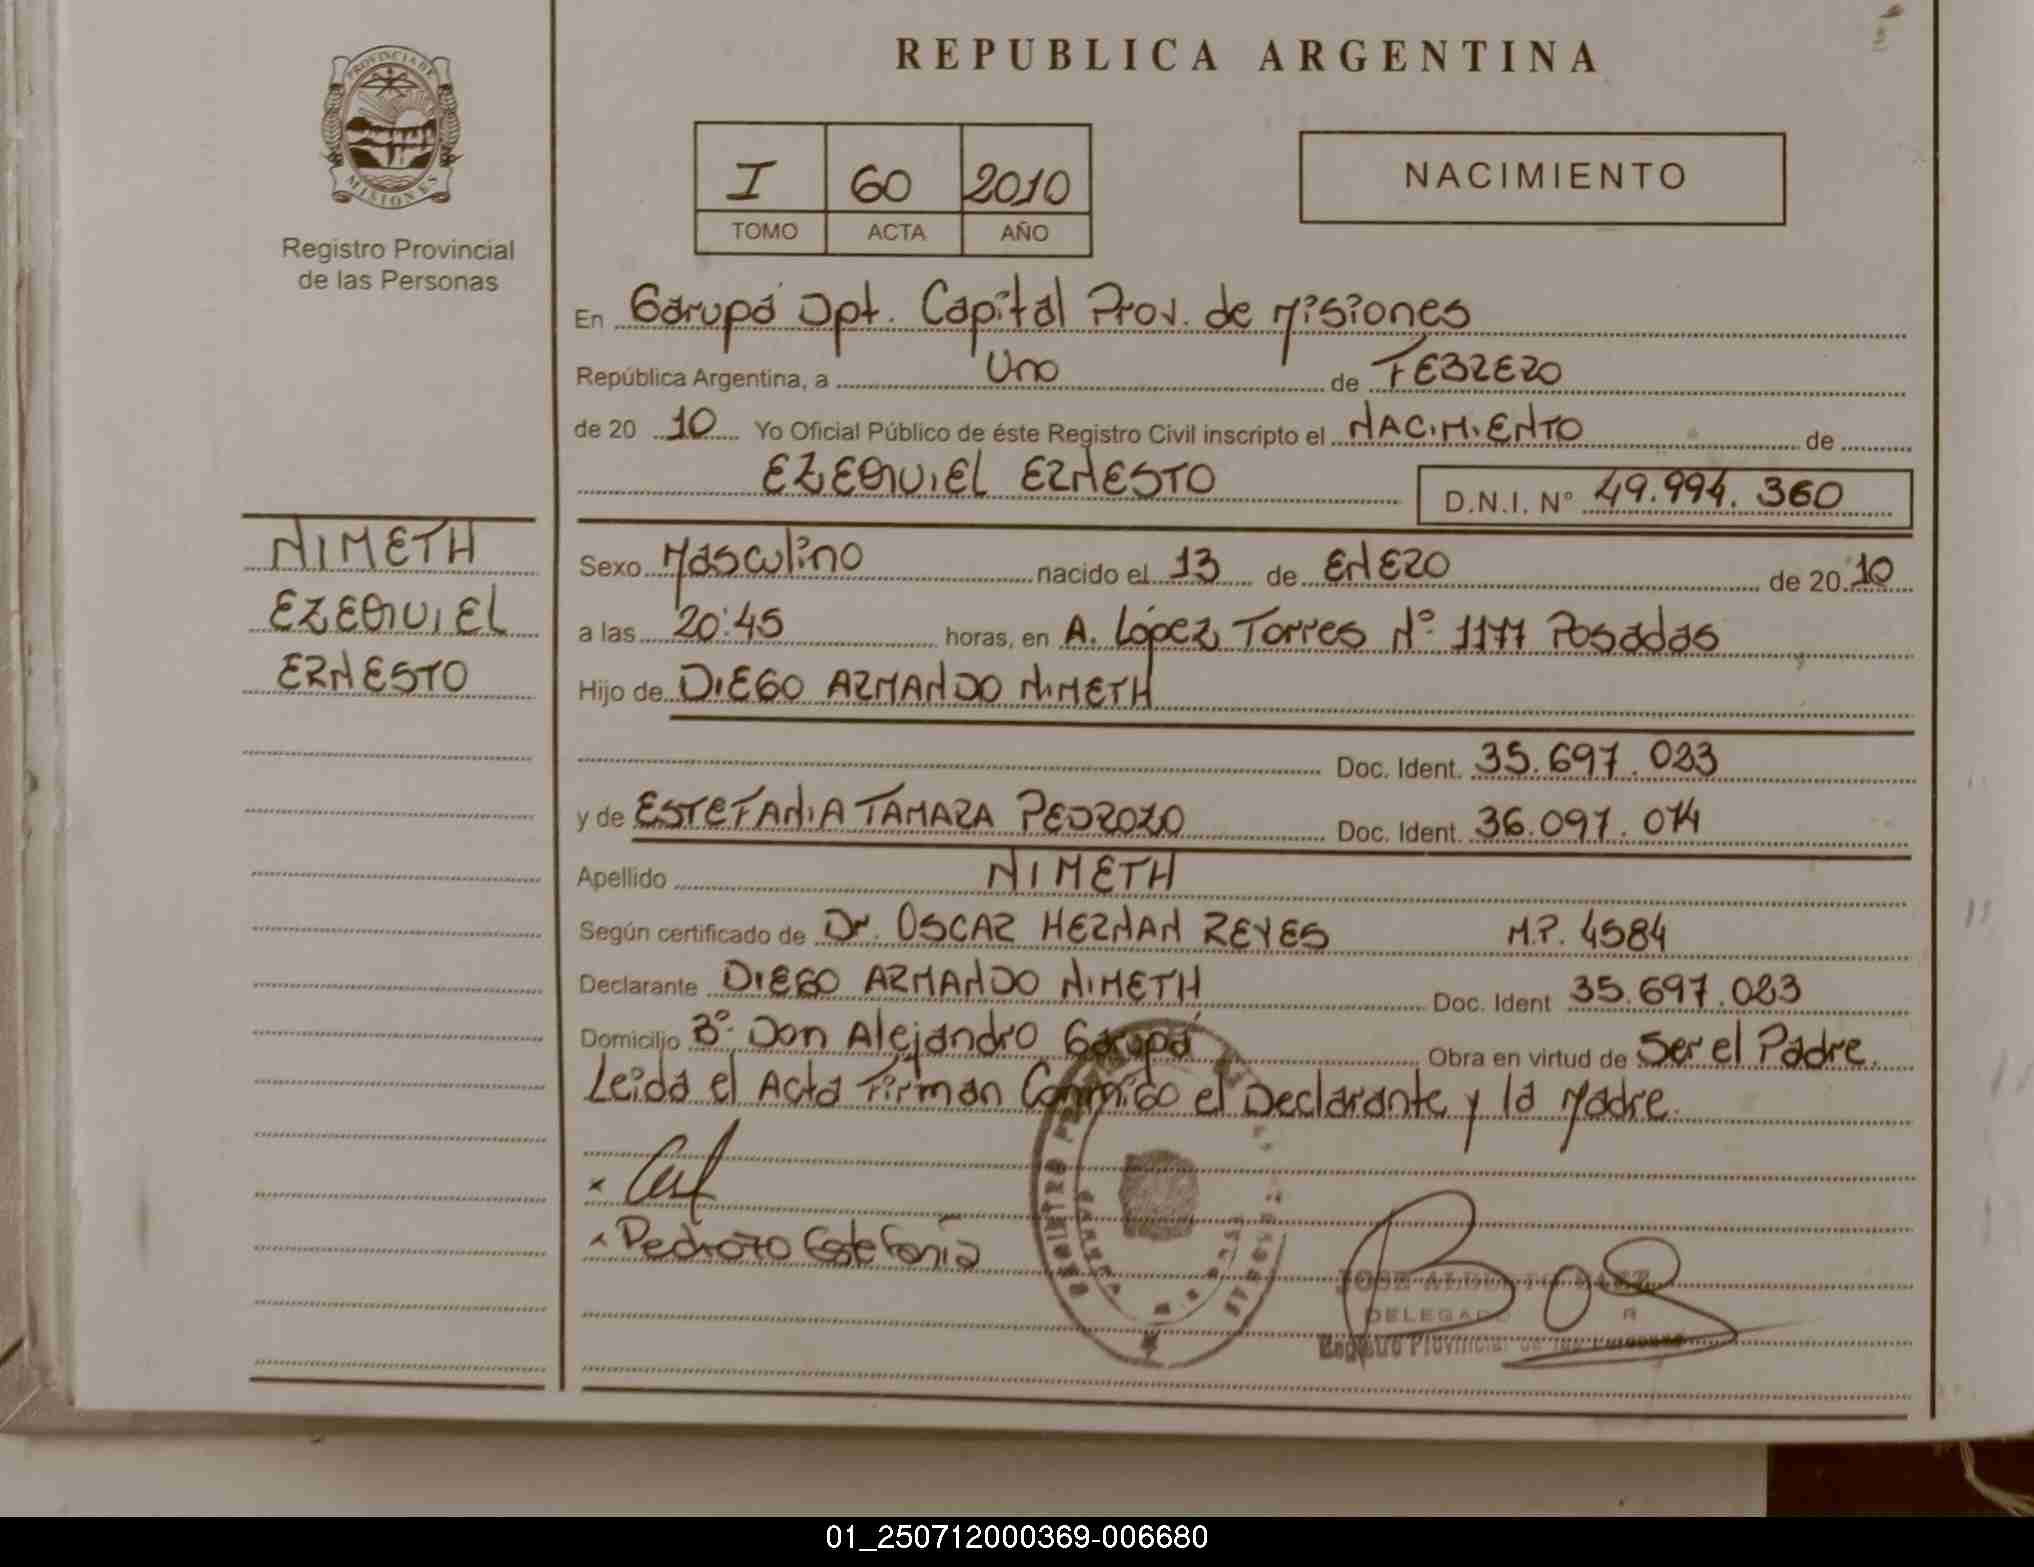 REPUBLICA ARGENTINA
PROVINCIA DE
MISIONES
Registro Provincial
de las Personas
I 60 2010
TOMO ACTA AÑO
NACIMIENTO
En Garupá Dpt. Capital Prov. de Misiones
República Argentina, a Uno de FEBRERO
de 20 10 Yo Oficial Público de éste Registro Civil inscripto el NACIMIENTO de
EZEQUIEL ERNESTO D.N.I. Nº 49.994.360
NIMETH
EZEQUIEL
ERNESTO
Sexo Masculino nacido el 13 de ENERO de 20 10
a las 20:45 horas, en A. López Torres Nº 1177 Posadas
Hijo de DIEGO ARMANDO NIMETH
Doc. Ident. 35.697.083
y de ESTEFANIA TAMARA PEDROZO Doc. Ident. 36.097.074
Apellido NIMETH
Según certificado de Dr. OSCAR HERNAN REYES M.P. 4584
Declarante DIEGO ARMANDO NIMETH Doc. Ident 35.697.083
Domicilio Bº Don Alejandro Garupá Obra en virtud de Ser el Padre.
Leida el Acta Firman Conmigo el Declarante y la Madre.
x
x Pedrozo Estefania
REGISTRO
JOSE ALBERTO
DELEGADO
Registro Provincial de las Personas
01_250712000369-006680